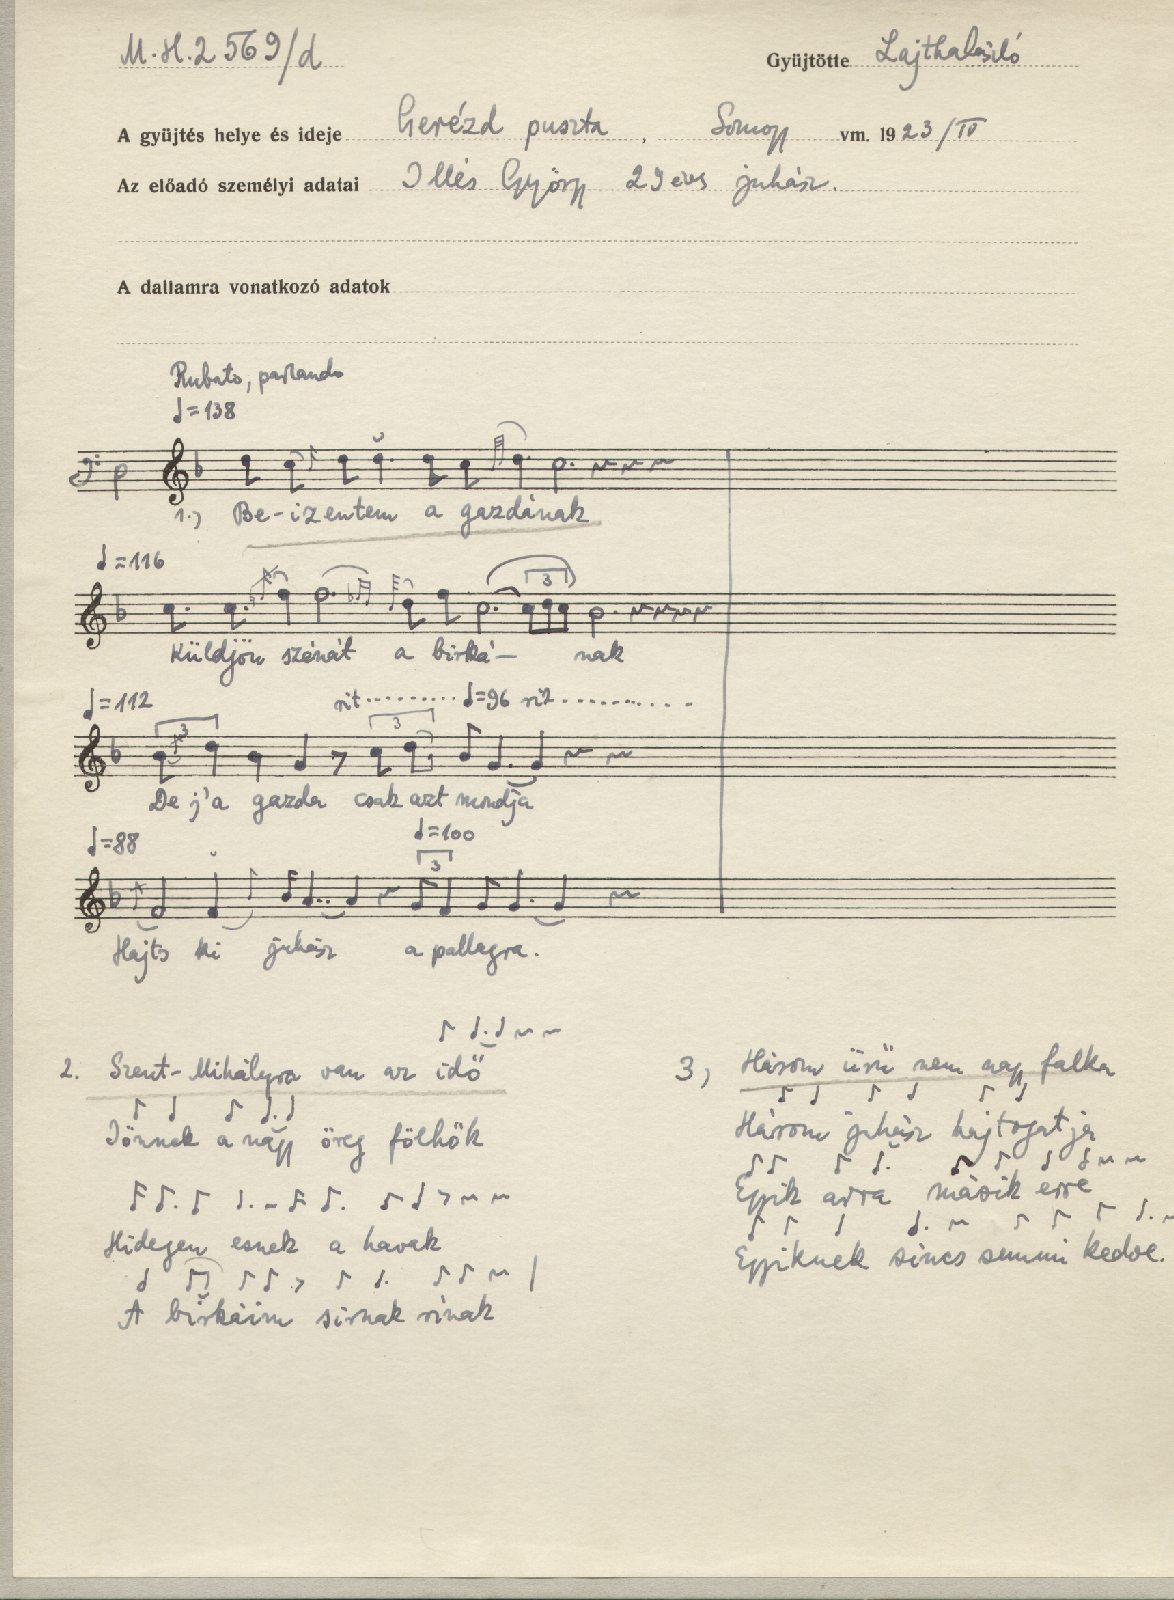 M.H.2569/d
Gyüjtötte Lajtha László
A gyüjtés helye és ideje Gerézd puszta, Somogy vm. 1923/IV
Az előadó személyi adatai Illés György 29 éves juhász.
A dallamra vonatkozó adatok
Rubato, parlando
♩=138
1.) Be-izentem a gazdának
♩=116
3
Küldjön szénát a birká- nak
♩=112 rit......... ♩=96 rit............
3 3
De j'a gazda csak azt mondja
♩=88 ♩=100
3
Hajts ki juhász a pallagra.
2. Szent-Mihályra van az idő
Jönnek a nagy öreg fölhők
Hidegen esnek a havak
A birkáim sirnak rínak
3) Három ürü nem nagy falka
Három juhász hajtogatja
Egyik arra másik erre
Egyiknek sincs semmi kedve.